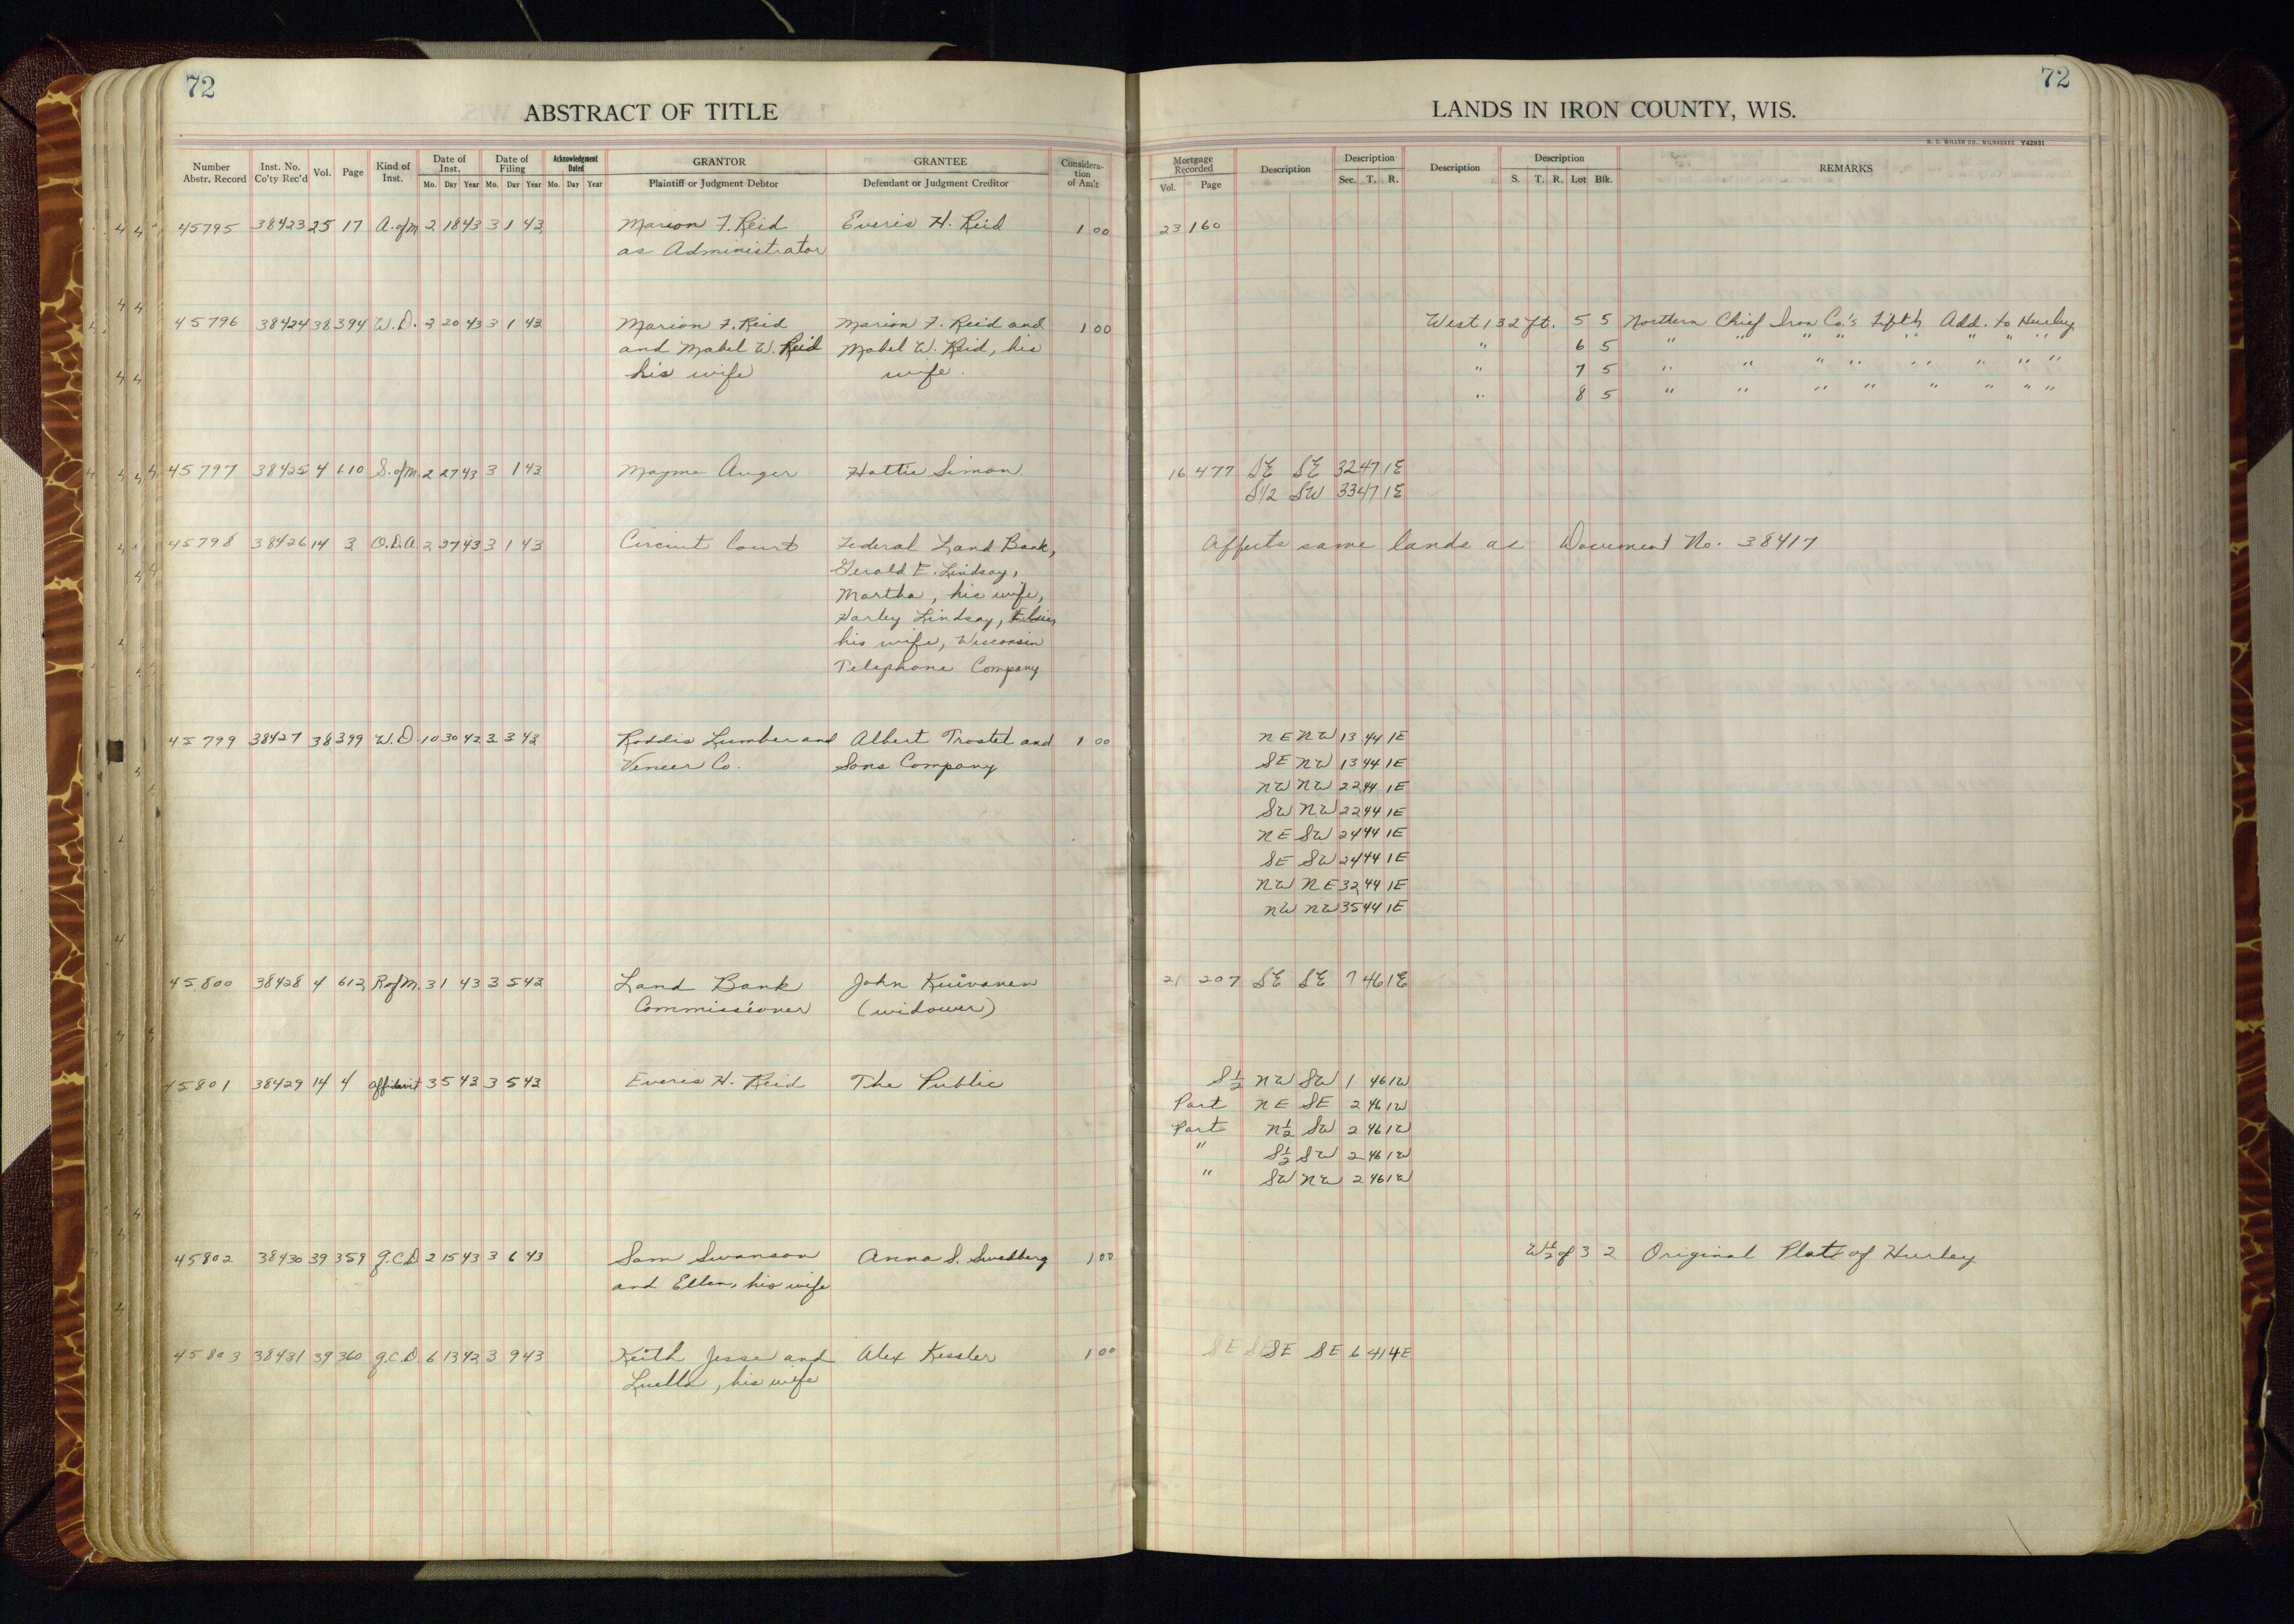 72
ABSTRACT OF TITLE
Number Abstr. Record Inst. No. Co'ty Rec'd Vol. Page Kind of Inst. Date of Inst. Mo. Day Year Date of Filing Mo. Day Year Acknowledgment Dated Mo. Day Year GRANTOR Plaintiff or Judgment Debtor GRANTEE Defendant or Judgment Creditor Considera-tion of Am't
45795 38423 25 17 A. of M 2 18 43 3 1 43 Marion F. Reid Everis H. Reid 1 00
as Administrator
45796 38424 38 394 W.D. 2 20 43 3 1 43 Marion F. Reid Marion F. Reid and 1 00
and Mabel W. Reid Mabel W. Reid, his
his wife wife.
45797 38425 4 610 S. of M. 2 27 43 3 1 43 Mayme Auger Hattie Simon
45798 38426 14 3 O.D.A. 2 27 43 3 1 43 Circuit Court Federal Land Bank,
Gerald E. Lindsay,
Martha, his wife,
Harley Lindsay,
his wife, Wisconsin
Telephone Company
45799 38427 38 399 W.D. 10 30 42 3 3 43 Roddis Lumber and Albert Trostel and 1 00
Veneer Co. Sons Company
45800 38428 4 612 R of M. 3 1 43 3 5 43 Land Bank John Kuivanen
Commissioner (widower)
45801 38429 14 4 Affidavit 3 5 43 3 5 43 Everis H. Reid The Public
45802 38430 39 359 Q.C.D 2 15 43 3 6 43 Sam Swanson Anna S. Swedberg 1 00
and Ellen, his wife
45803 38431 39 360 Q.C.D. 6 13 42 3 9 43 Keith Jesse and Alex Kessler 1 00
Luella, his wife
72
LANDS IN IRON COUNTY, WIS.
H. C. MILLER CO., MILWAUKEE Y42931
Mortgage Recorded Vol. Page Description Description Sec. T. R. Description Description S. T. R. Lot Blk. REMARKS
23 160
West 132 ft. 5 5 Northern Chief Iron Co.'s Fifth Add. to Hurley
" 6 5 " " " " " " " "
" 7 5 " " " " " " " "
" 8 5 " " " " " " " "
16 477 SE SE 32 47 1E
S1/2 SW 33 47 1E
Affects same lands as Document No. 38417
NE NW 13 44 1E
SE NW 13 44 1E
NW NW 22 44 1E
SW NW 22 44 1E
NE SW 24 44 1E
SE SW 24 44 1E
NW NE 32 44 1E
NW NW 35 44 1E
21 207 SE SE 7 46 1E
S½ NW SW 1 46 1W
Part NE SE 2 46 1W
Part N½ SW 2 46 1W
" S½ SW 2 46 1W
" SW NW 2 46 1W
W½ of 3 2 Original Plat of Hurley
SE SE SE SE 6 41 4E